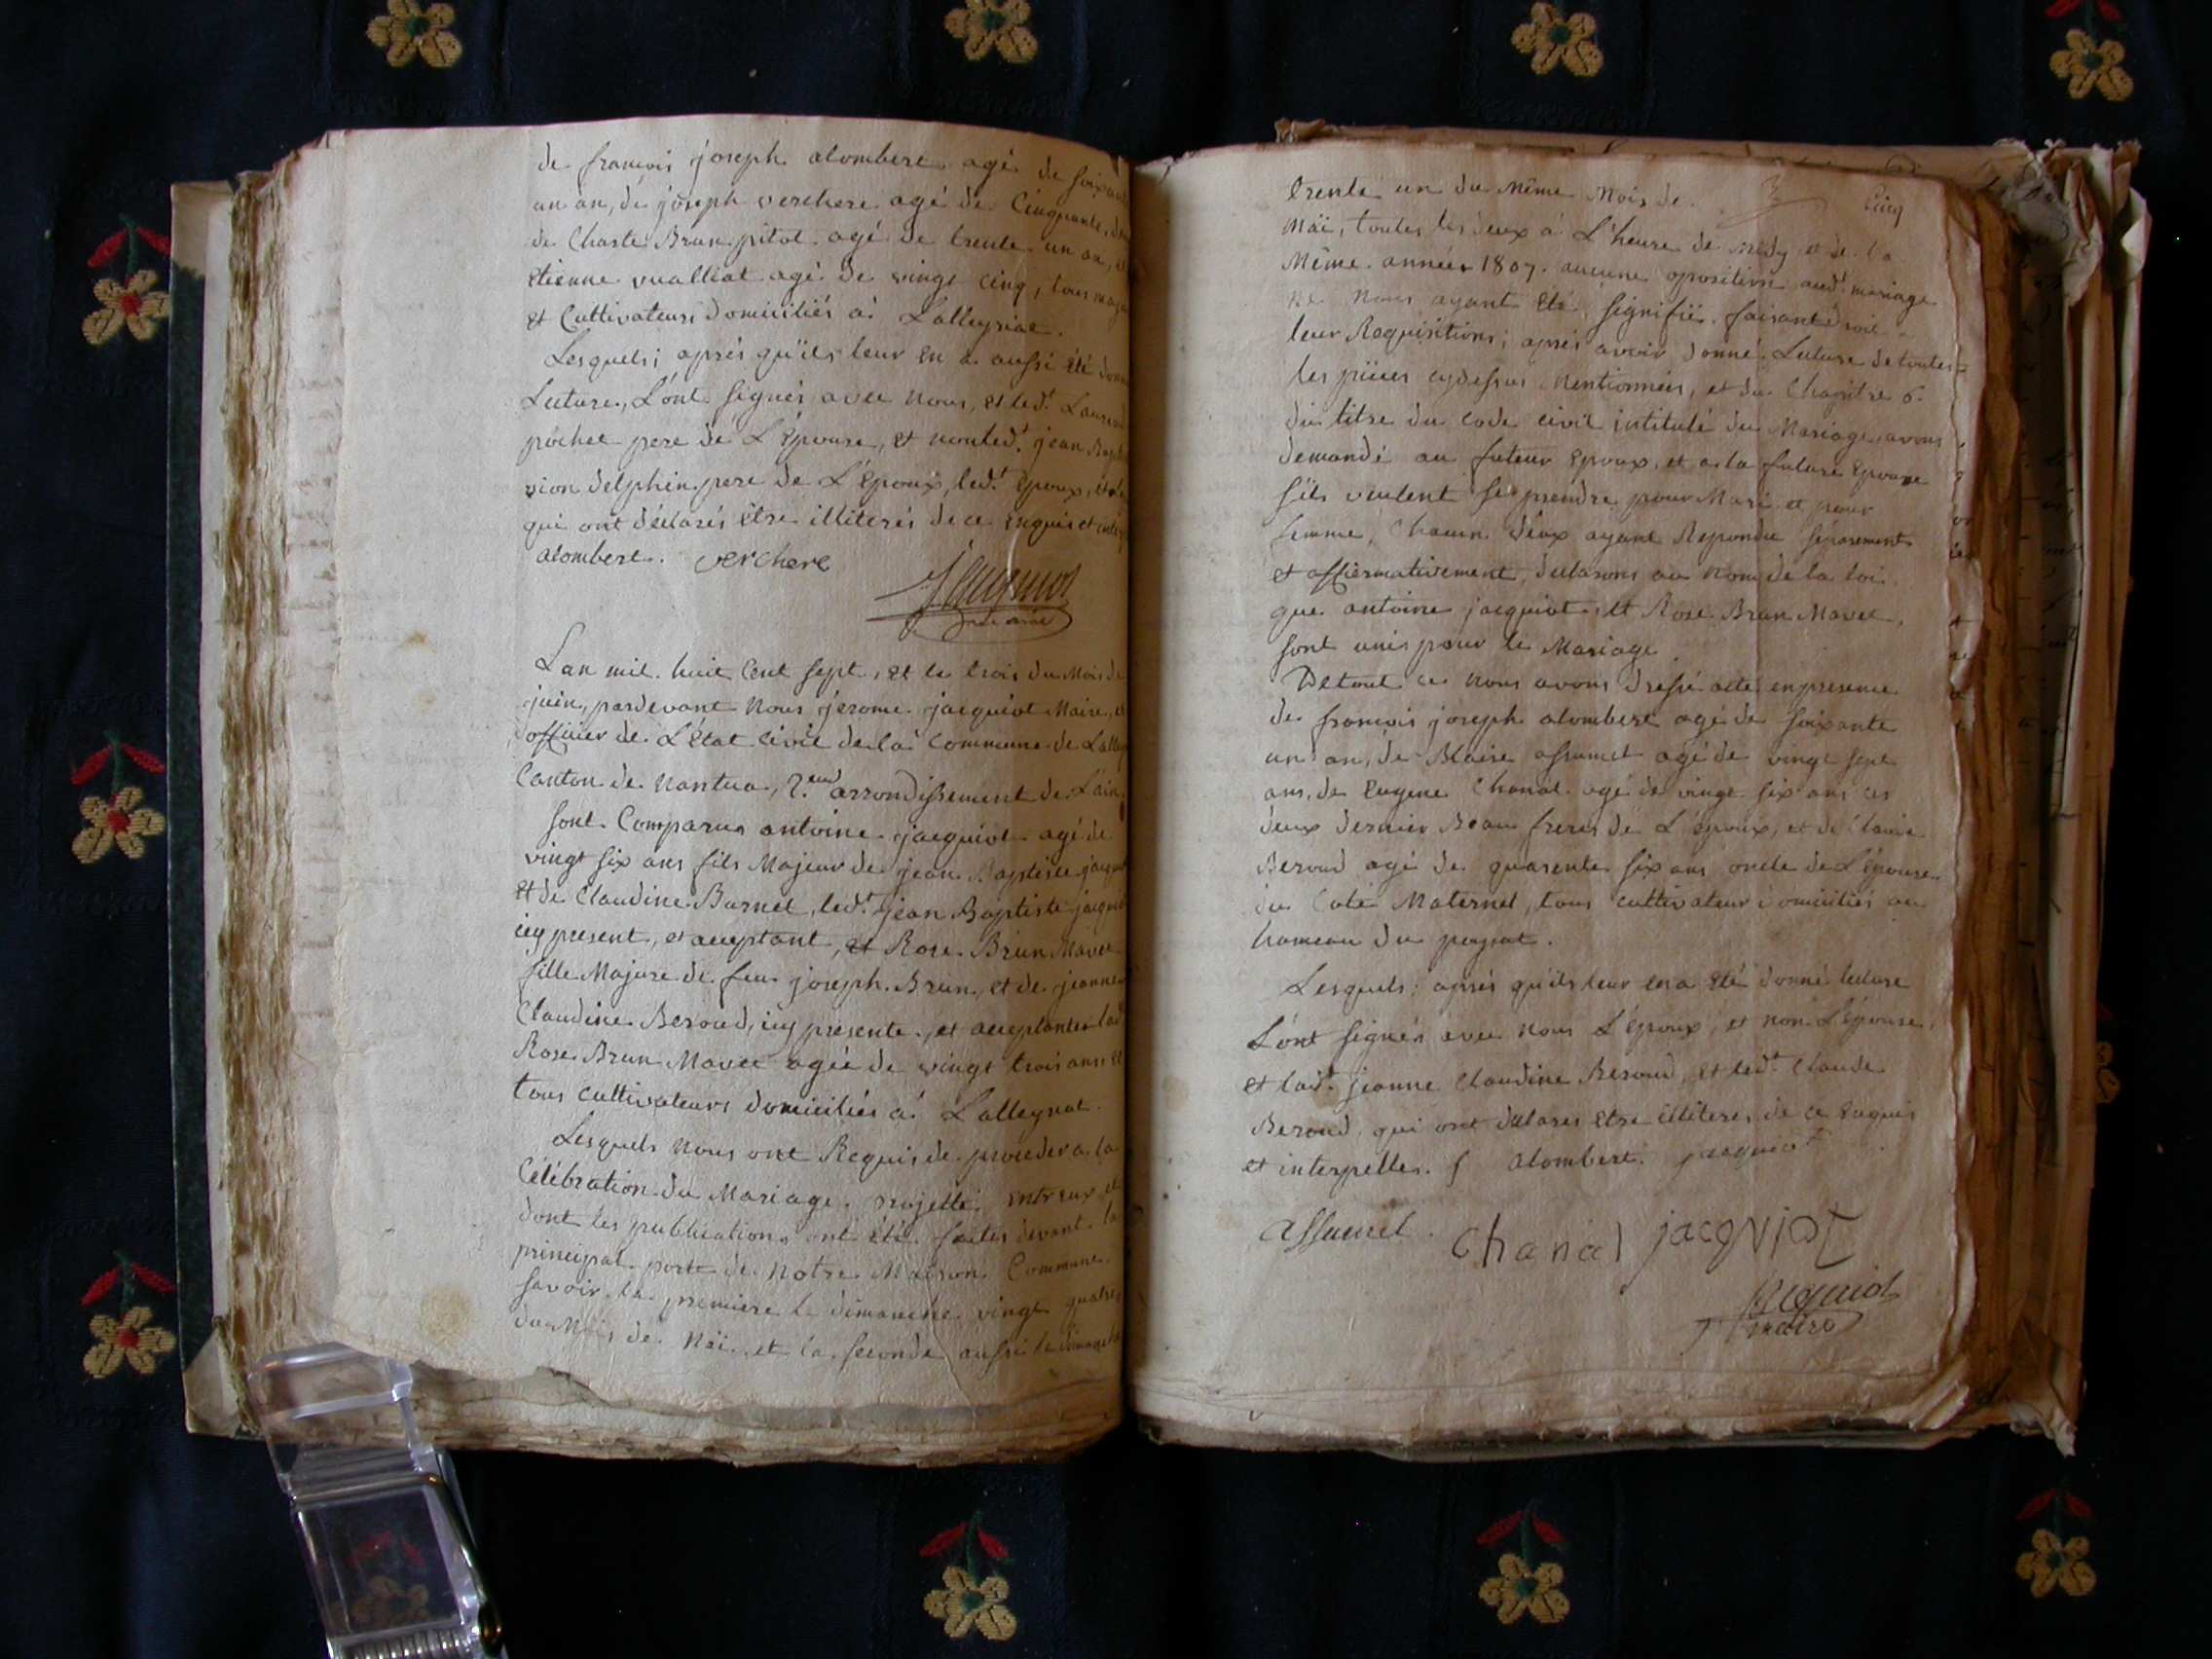 de françois joseph alombert agé de
un an, de joseph verchere agé de Cinquante,
de Charte Brun pitot agé de trente un an,
etienne vualliat agé de vingt cinq, tous
et Cultivateurs Domiciliés a Lalleyriat.
Lesquels; aprés qu'ils leur en a aussi été
Lecture, L'ont signés avec nous, et led.t
pochet pere de L'Epouse, et nonled.t jean
sion delphin pere de L'Epoux, led.t Epoux,
qui ont déclarés être illiterés de ce enquis et
alombert. verchere
Jacquiot
maire
Lan mil huit Cent sept, et le trois du Mois de
juin, pardevant Nous jerome jacquiot Maire, et
officier de L'état Civil de la Commune de
Canton de Nantua, 2.eme arrondissement de L'ain.
sont Comparus antoine jacquiot agé de
vingt six ans fils Majeur de jean Baptiste
et de Claudine Burnet, led.t jean Baptiste
icy present, et acceptant, et Rose Brun Mavet
fille Majure de feu joseph Brun, et de jeanne
Claudine Beroud, icy presente, et acceptante
Rose Brun Mavet agée de vingt trois ans et
tous cultivateurs domiciliés a Lalleyriat.
Lesquels nous ont Requis de proceder a la
Célébration du Mariage projetté entreux et
dont les publications ont été faites devant la
principal porte de Notre Maison Commune
savoir la premiere le dimanche vingt quatre
du Mois de Maï, et la seconde aussi le
trente un du Même Mois de
Cinq
Maï, toutes les deux a L'heure de midy et de la
Même année 1807. aucune oposition aud.t mariage
ne Nous ayant été signifié. faisant droit a
leur Requisitions; aprés avoir donné Lecture de toutes
les piéces cydessus mentionnées, et du Chapitre 6.
du titre du Code civil intitulé du Mariage, avons
demandé au futeur Epoux, et a la future Epouse
s'ils veulent se prendre pour Mari et pour
femme, Chacun d'eux ayant Repondu séparement
et affirmativement, déclarons au Nom de la loi
que antoine jacquiot, et Rose Brun Mavet,
sont unis pour le Mariage
De tout ce nous avons dressé acte en presence
de françois joseph alombert agé de soixante
un an, de Blaise assumet agé de vingt sept
ans, de Eugene Chanal agé de vingt six ans ces
deux dernier Beau freres de L'époux, et de Claude
Beroud agé de quarente six ans oncle de L'épouse
du Coté Maternel, tous cultivateur domiciliés au
hameau du
Lesquels; aprés qu'ils leur en a été donné lecture
L'ont signés avec nous L'époux, et non L'épouse,
et lad.t jeanne Claudine Beroud, et led.t Claude
Beroud, qui ont déclarés etre illiteres, de ce Enquis
et interpelles. alombert. jacquiot
assumet. Chanal jacqviot
Jacquiot
maire